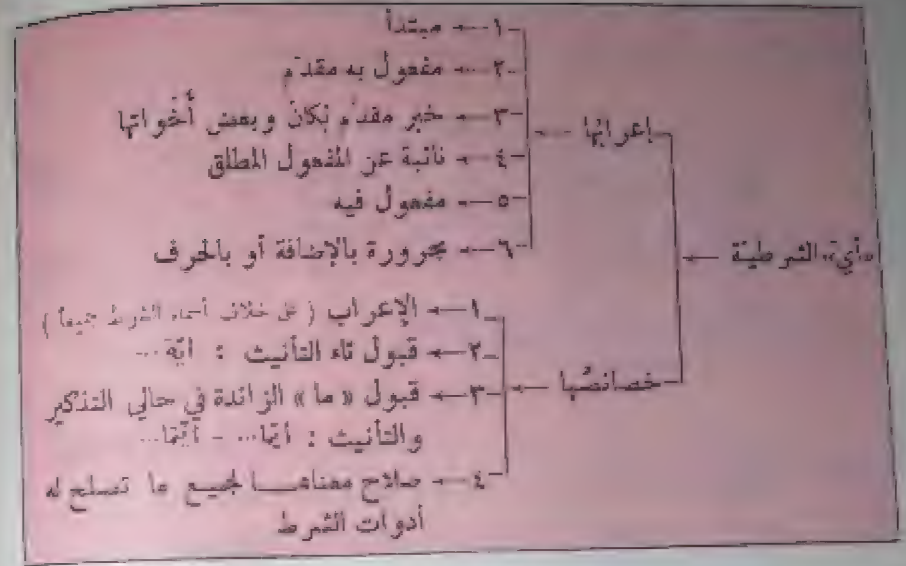 ١- ← مبتدأ
٢- ← مفعول به مقدّم
إعرابُها ← ٣- ← خبر مقدّم لكان وبعض أخواتها
٤- ← نائبة عن المفعول المطلق
٥- ← مفعول فيه
«أيّ» الشرطيّة ← ٦- ← مجرورة بالإضافة أو بالحرف
١- ← الإعراب ( على خلاف أسماء الشرط جميعاً )
٢- ← قبول تاء التأنيث : ايّة ...
خصائصُها ← ٣- ← قبول « ما » الزائدة في حالي التذكير
والتأنيث : أيّما... - أيّتما...
٤- ← صلاح معناهــا لجميع ما تصلح له
أدوات الشرط